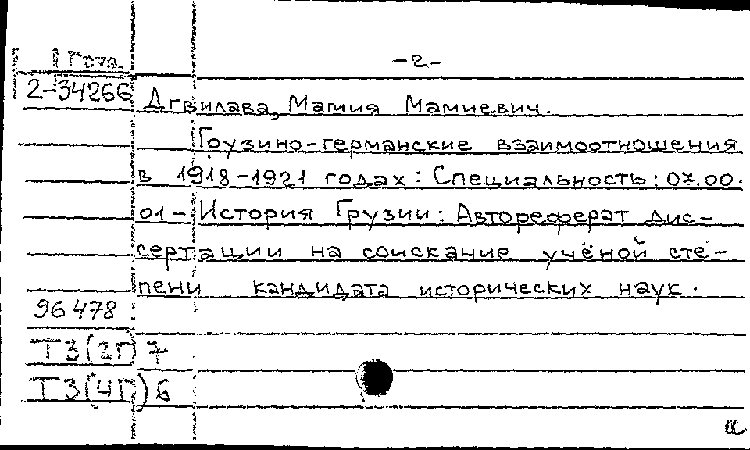 -2-
Г872
2-34266
Дгвилава, Мамия Мамиевич.
Грузино-германские взаимоотношения
в 1918-1921 годах: Специальность: 07.00.
01 - История Грузии: Автореферат дис-
сертации на соискание учёной сте-
пени кандидата исторических наук.
96478
Т3(2Г)7
Т3(4Г)6